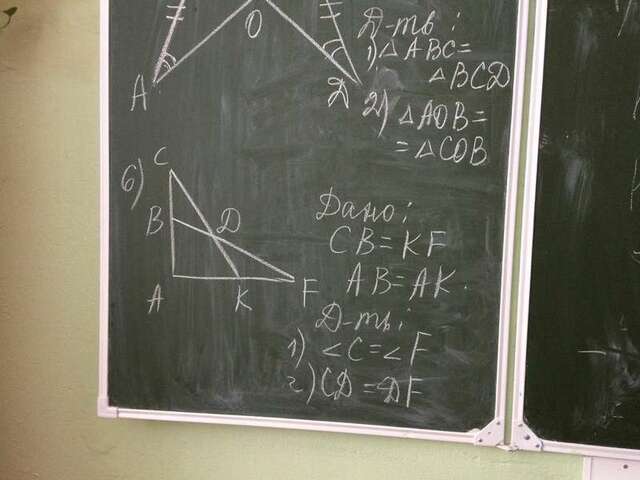 O
A
D
Д-ть:
1) △ABC=
△BCD
2) △AOB=
=△COB
6)
C
B
D
A
K
F
Дано:
CB=KF
AB=AK.
Д-ть:
1) ∠C=∠F
2) CD=DF